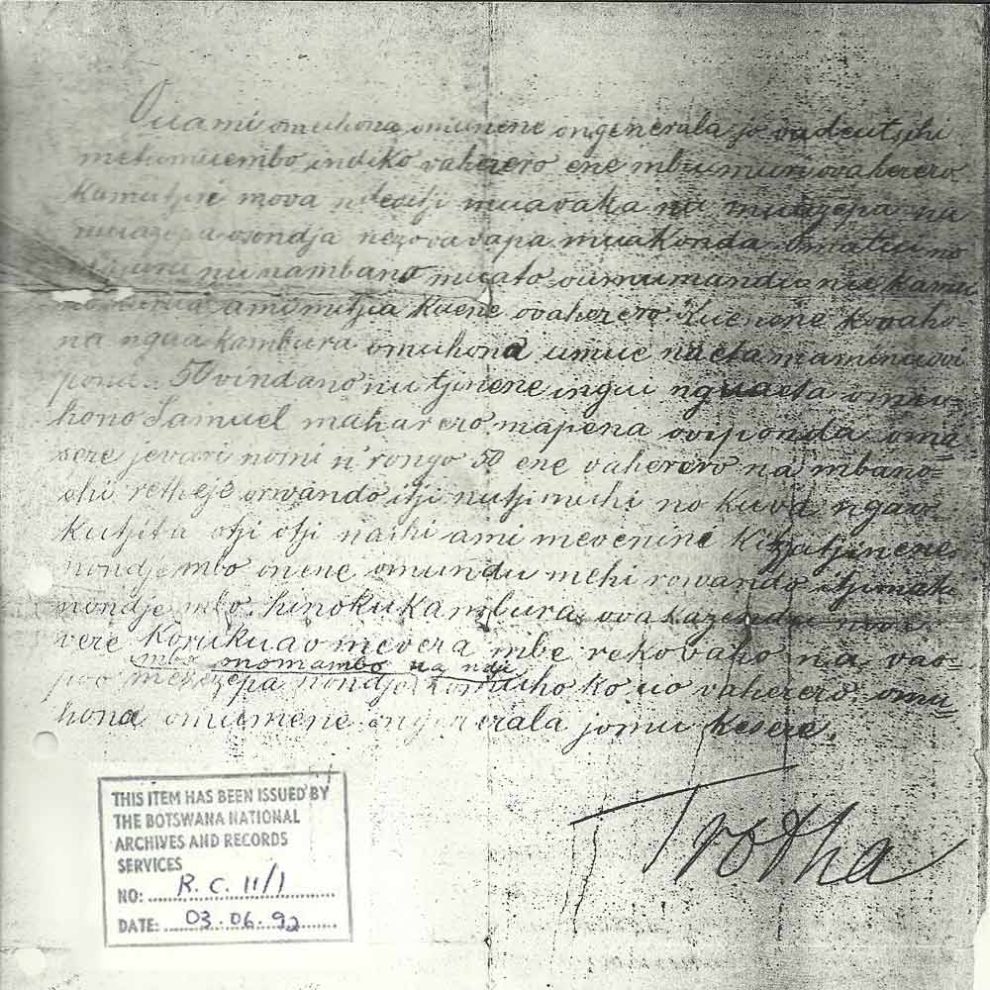 Ouami omuhona omunene ongenerala jo vadeutschi
metumu embo indi ko vaherero ene mbu muri ovaherero
Kamutjiri mova ndeutji muavaka nu muazepa na
muazepa osondja nezova vapa muakonda omatui no
nu nambano muato oumumandu nu kamu
amomitjia Kuene ovaherero Kuenene kovaho-
na ngua kambura omuhona umue naeta mamunavi
pona 50 vindano nu tjinene ingui nguaeta omu-
hono Samuel maharero mapena oviponda oma
sere jevari nomi n'rongo 50 ene vaherero na mbano
shi retheje orwando itji nutji mushi no kuva ngao
kutjita otji otji nashi ami mevenine
nondje mbo onene omundu mehi rowando
nondje mbo. hinokukambura ovakazendu
vere Korukuao mevera mbe rekovaho na vao-
mbo momambo na ndji
poo mevezepa nondje komusho ko uo vaherero omu-
hona omumene ongenerala jomu Kesere.
Trotha
THIS ITEM HAS BEEN ISSUED BY
THE BOTSWANA NATIONAL
ARCHIVES AND RECORDS
SERVICES
NO: R.C. 11/1
DATE: 03.06.92